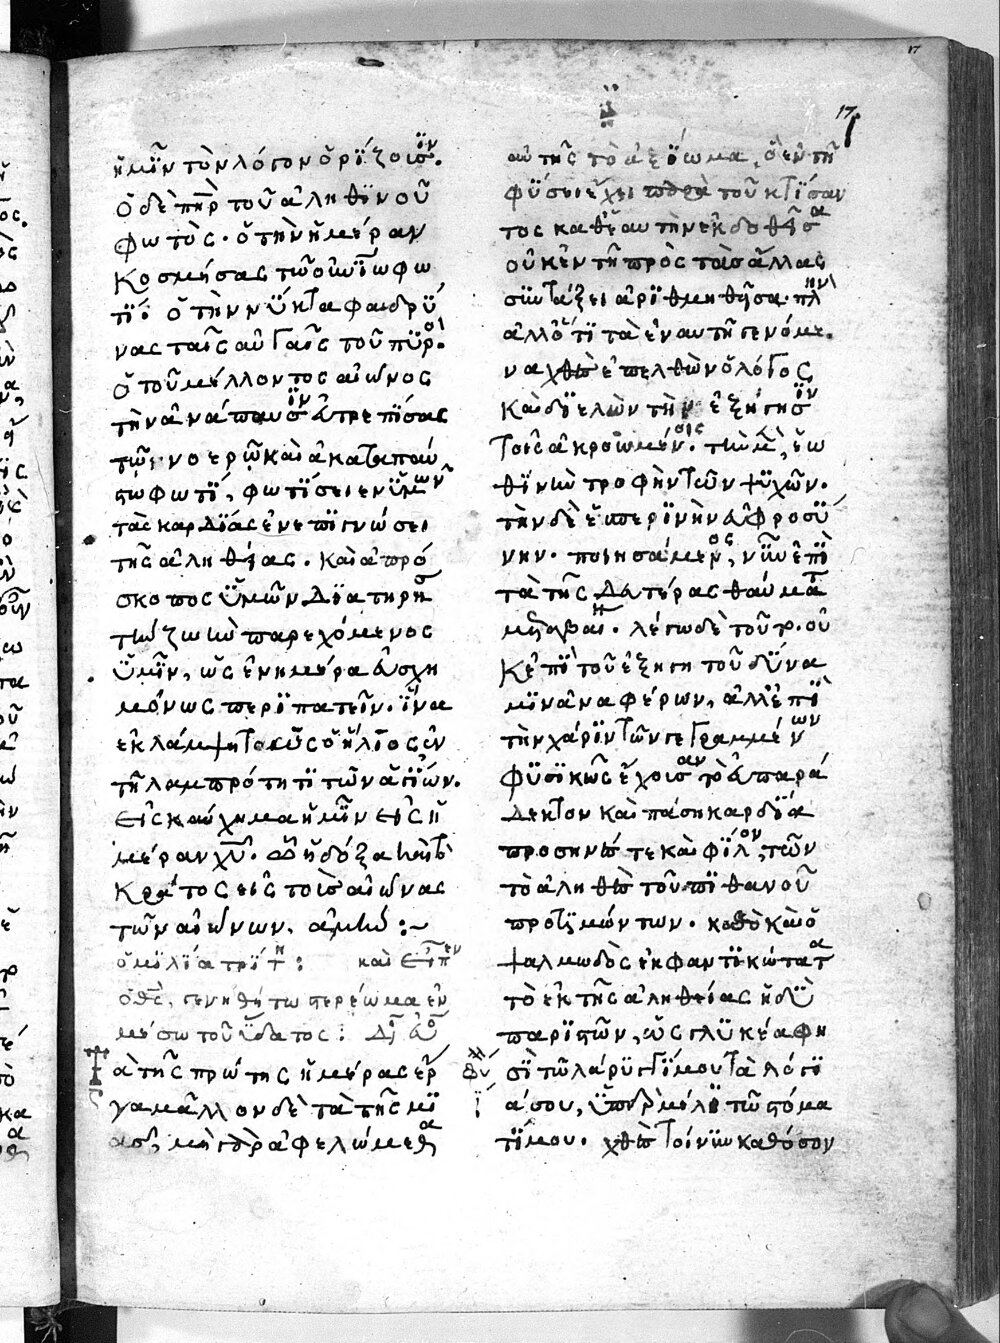 17
17
ἡμῖν τὸν λόγον ὁρίζουσιν.
Ὁ δὲ πὴρ τοῦ ἀληθινοῦ
φωτὸς. ὁ τὴν ἡμέραν
κοσμήσας τῷ οὐνίῳ φω
τί· ὁ τὴν νύκτα φαιδρύ
νας ταῖς αὐγαῖς τοῦ πυρός.
ὁ τοῦ μέλλοντος αἰῶνος
τὴν ἀνάπαυσιν εὐτρεπίσας
τῷ νοερῷ καὶ ἀκαταπαύ
στῳ φωτί, φωτίσειεν ὑμῶν
τὰς καρδίας ἐν ἐπιγνώσει
τῆς ἀληθείας. καὶ ἀπρό
σκοπος ὑμῶν διατηρῆ
τὴν ζωὴν παρεχόμενος
ὑμῖν, ὡς ἐν ἡμέρα εὐσχη
μόνως περιπατεῖν. ἵνα
ἐκλάμψητε ὡς ὁ ἥλιος ἐν
τῆ λαμπρότητι τῶν ἁγίων.
εἰς καύχημα ἡμῖν εἰς ἡ
μέραν χῦ. ᾧ ἡ δόξα καὶ τὸ
κράτος εἰς τοὺς αἰῶνας
τῶν αἰώνων, ἀμήν:~
ὁμιλία τρίτη: καὶ εἶπεν
ὁ θς, γενηθήτω στερέωμα ἐν
μέσω τοῦ ὕδατος:
τὰ τῆς πρώτης ἡμέρας ἔρ
γα μᾶλλον δὲ τὰ τῆς μι
ᾶς, μὴ γὰρ ἀφελώμεθα
αὐτῆς τὸ ἀξίωμα, ὃ ἐν τῆ
φύσει ἔχει παρὰ τοῦ κτίσαν
τος καθ' ἑαυτὴν ἐκδοθεῖσα
οὐκ ἐν τῆ πρὸς τὰς ἄλλας
συντάξει ἀριθμηθεῖσα. πλὴν
ἀλλ' ὅτι τὰ ἐν αὐτῆ γενόμε.
να χθὲς ἐπελθὼν ὁ λόγος
καὶ διελὼν τὴν ἐξήγησιν
τοῖς ἀκροωμένοις. τὴν μὲν, ἑω
θινὴν τροφὴν τῶν ψυχῶν.
τὴν δὲ ἑσπερινὴν εὐφροσύ
νην. ποιησάμενος, νῦν ἐπὶ
τὰ τῆς δευτέρας θαύματα
μεταβαίνει. λέγω δὲ τοῦτο. οὐ
κ ἐπὶ τοῦ ἐξηγητοῦ δύνα
μιν ἀναφέρων, ἀλλ' ἐπὶ
τὴν χάριν τῶν γεγραμμένων
φυσικῶς ἐχουσαν τὸ εὐπαρά
δεκτον καὶ πάση καρδία
προσηνές τε καὶ φίλον, τῶν
τὸ ἀληθὲς τοῦ πιθανοῦ
προτιμώντων. καθὸ καὶ ὁ
ψαλμωδὸς ἐμφαντικώτατα
τὸ ἐκ τῆς ἀληθείας ἡδὺ
παριστῶν, ὡς γλυκέα φη
σὶ τῶ λάρυγγί μου τὰ λόγι
ά σου, ὑπὲρ μέλι τῷ στόμα
τί μου. χθὲς τοίνυν καθόσον